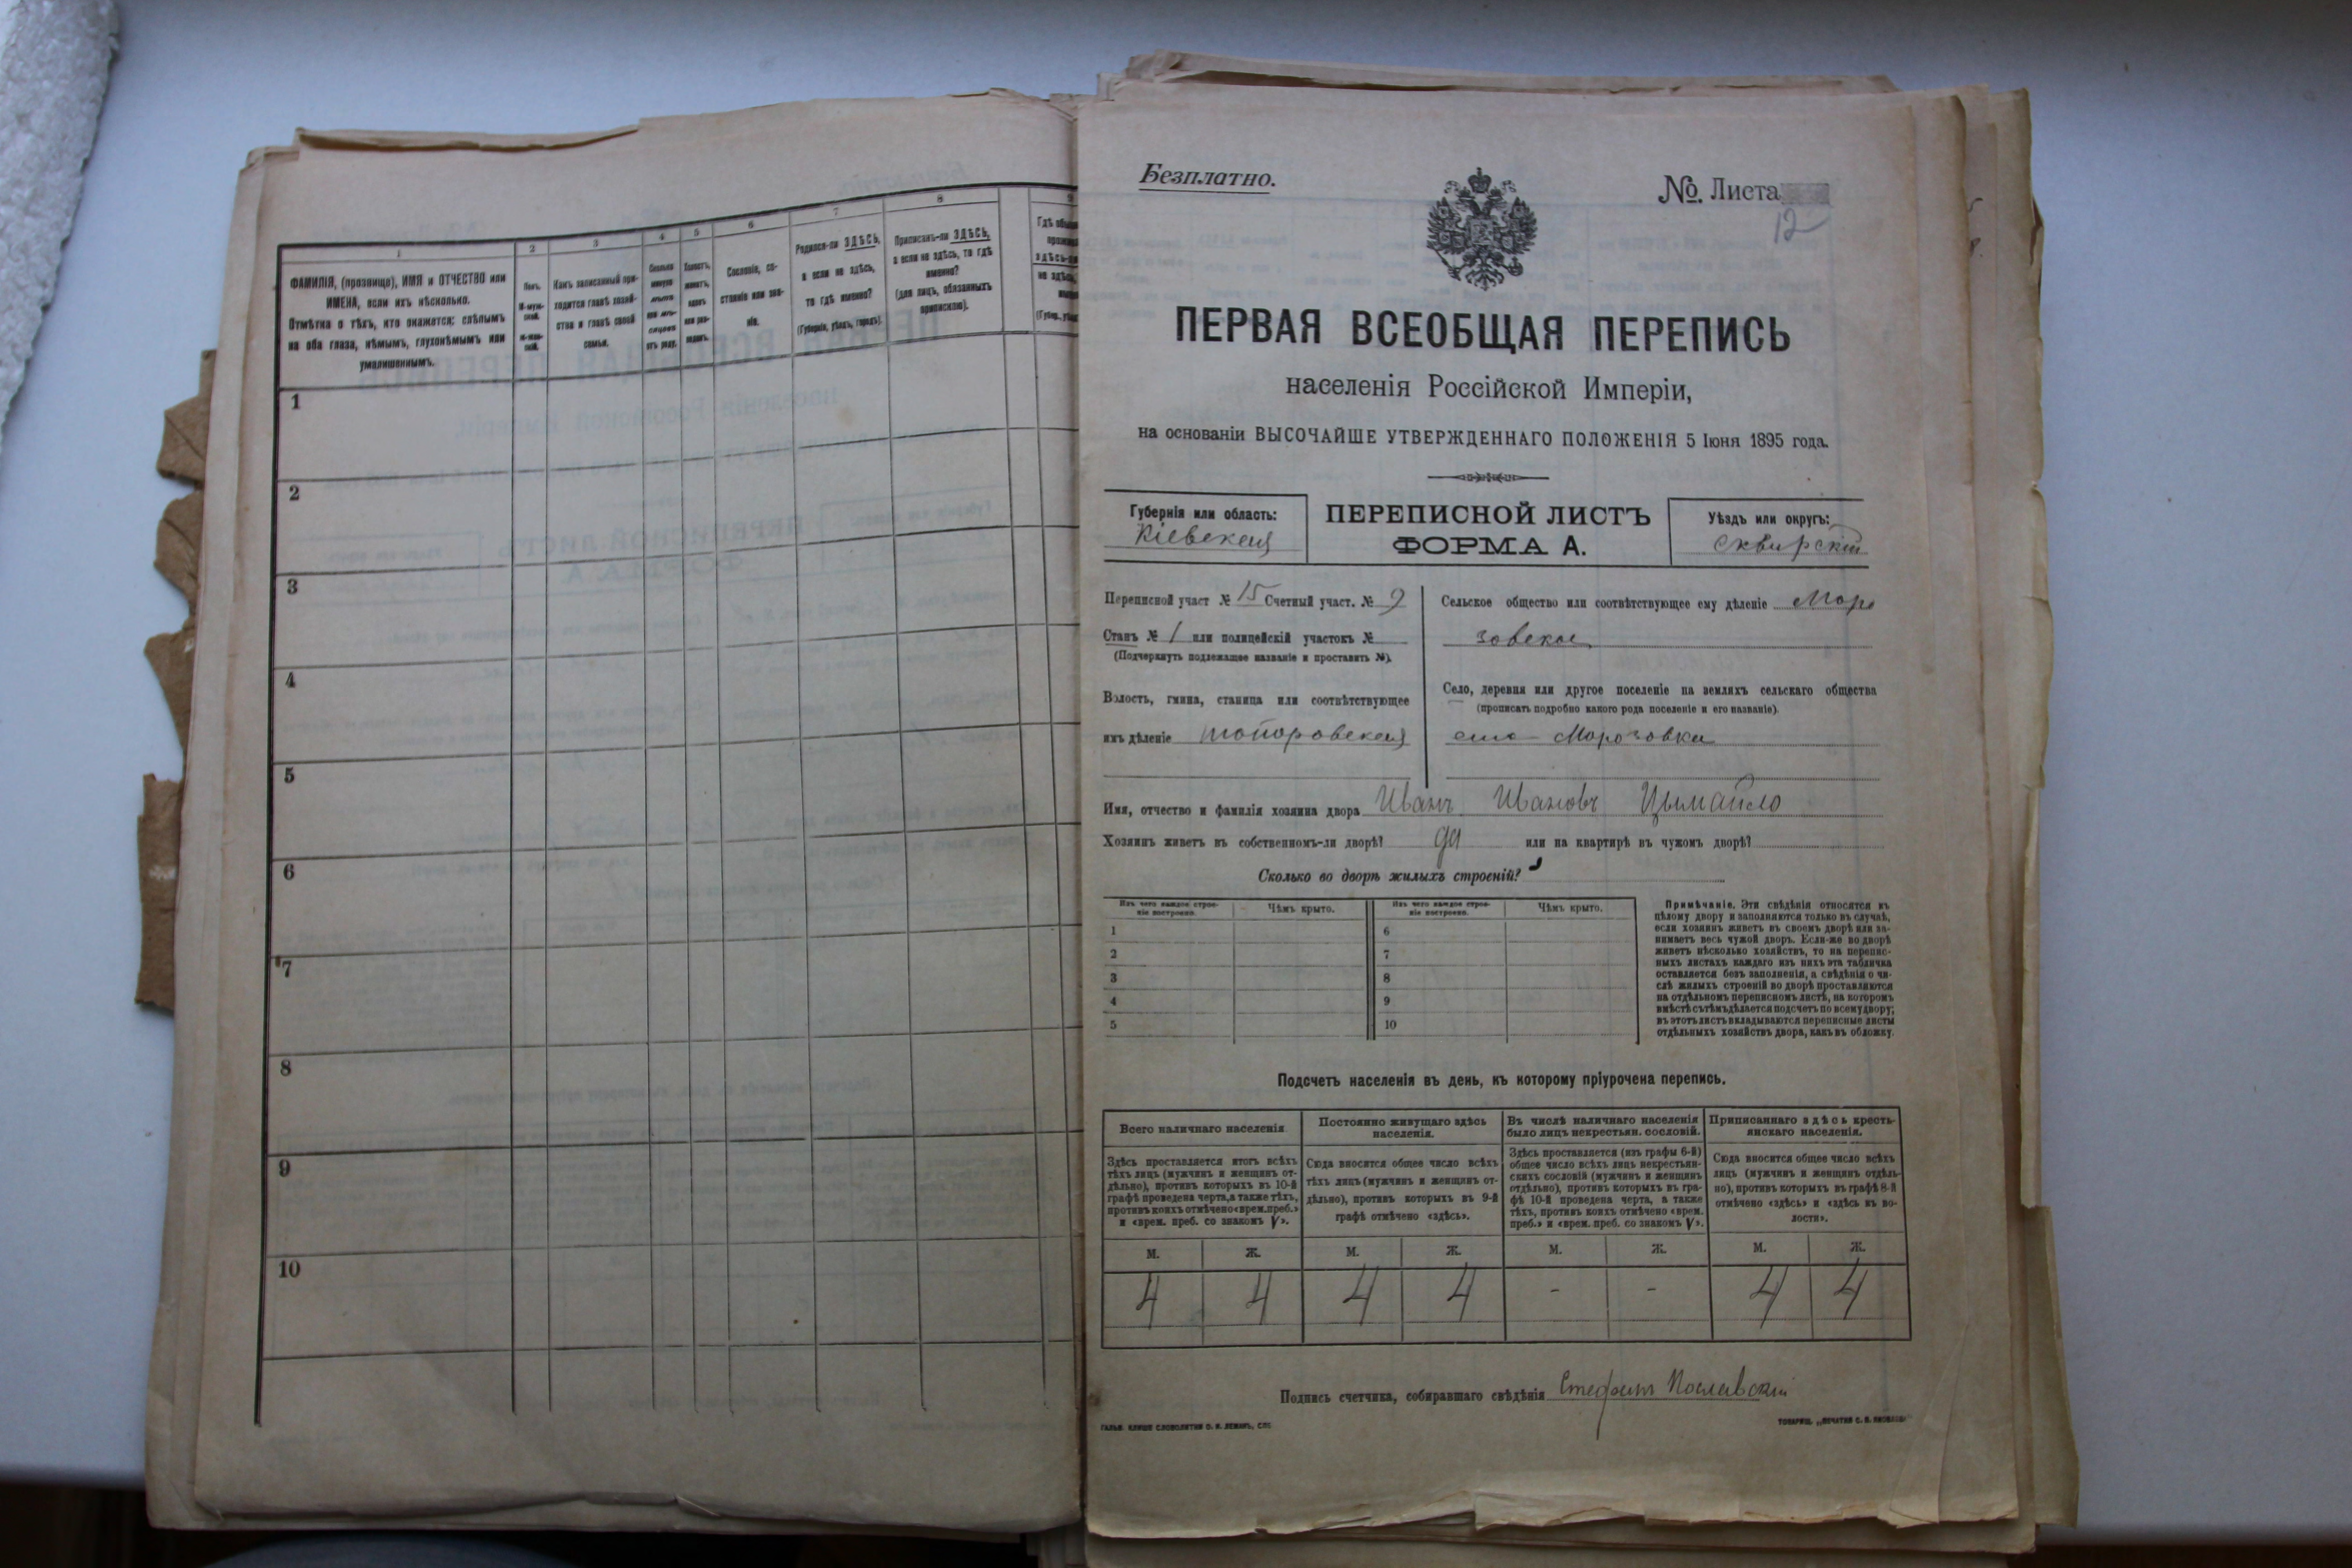 1
2
3
4
5
6
7
8
ФАМИЛІЯ, (прозвище), ИМЯ и ОТЧЕСТВО или
ИМЕНА, если ихъ нѣсколько.
Отмѣтка о тѣхъ, кто окажется: слѣпымъ
на оба глаза, нѣмымъ, глухонѣмымъ или
умалишеннымъ.
Полъ.
М-муж-
ской.
Ж-жен-
скій.
Какъ записанный при-
ходится главѣ хозяй-
ства и главѣ своей
семьи.
Сколько
минуло
лѣтъ
или мѣ-
сяцевъ
отъ роду.
Холостъ,
женатъ,
вдовъ
или раз-
веденъ.
Сословіе, со-
стояніе или зва-
ніе.
Родился-ли ЗДѢСЬ,
а если не здѣсь,
то гдѣ именно?
(Губернія, уѣздъ, городъ).
Приписанъ-ли ЗДѢСЬ,
а если не здѣсь, то гдѣ
именно?
(для лицъ, обязанныхъ
припискою).
1
2
3
4
5
6
7
8
9
10
Безплатно.
№. Листа
12
ПЕРВАЯ ВСЕОБЩАЯ ПЕРЕПИСЬ
населенія Россійской Имперіи,
на основаніи ВЫСОЧАЙШЕ УТВЕРЖДЕННАГО ПОЛОЖЕНІЯ 5 Іюня 1895 года.
Губернія или область:
Кіевская
ПЕРЕПИСНОЙ ЛИСТЪ
ФОРМА А.
Уѣздъ или округъ:
Сквирскій
Переписной участ № 15 Счетный участ. № 9
Станъ № 1 или полицейскій участокъ №
(Подчеркнуть подлежащее названіе и проставить №).
Волость, гмина, станица или соотвѣтствующее
имъ дѣленіе Топоровская
Сельское общество или соотвѣтствующее ему дѣленіе Моро
зовское
Село, деревня или другое поселеніе на земляхъ сельскаго общества
(прописать подробно какого рода поселеніе и его названіе).
село Морозовка
Имя, отчество и фамилія хозяина двора Иванъ Ивановъ Цымайло
Хозяинъ живетъ въ собственномъ-ли дворѣ? да или на квартирѣ въ чужомъ дворѣ?
Сколько во дворѣ жилыхъ строеній?
Изъ чего каждое строе-
ніе построено.
Чѣмъ крыто.
Изъ чего каждое строе-
ніе построено.
Чѣмъ крыто.
1 6
2 7
3 8
4 9
5 10
Примѣчаніе. Эти свѣдѣнія относятся къ
цѣлому двору и заполняются только въ случаѣ,
если хозяинъ живетъ въ своемъ дворѣ или за-
нимаетъ весь чужой дворъ. Если-же во дворѣ
живетъ нѣсколько хозяйствъ, то на перепис-
ныхъ листахъ каждаго изъ нихъ эта табличка
оставляется безъ заполненія, а свѣдѣнія о чи-
слѣ жилыхъ строеній во дворѣ проставляются
на отдѣльномъ переписномъ листѣ, на которомъ
вмѣстѣ съ тѣмъ дѣлается подсчетъ по всему двору;
въ этотъ листъ вкладываются переписные листы
отдѣльныхъ хозяйствъ двора, какъ въ обложку.
Подсчетъ населенія въ день, къ которому пріурочена перепись.
Всего наличнаго населенія
Здѣсь проставляется итогъ всѣхъ
тѣхъ лицъ (мужчинъ и женщинъ от-
дѣльно), противъ которыхъ въ 10-й
графѣ проведена черта, а также тѣхъ,
противъ коихъ отмѣчено «врем. преб.»
и «врем. преб. со знакомъ V».
Постоянно живущаго здѣсь
населенія.
Сюда вносится общее число всѣхъ
тѣхъ лицъ (мужчинъ и женщинъ от-
дѣльно), противъ которыхъ въ 9-й
графѣ отмѣчено «здѣсь».
Въ числѣ наличнаго населенія
было лицъ некрестьян. сословій.
Здѣсь проставляется (изъ графы 6-й)
общее число всѣхъ лицъ некрестьян-
скихъ сословій (мужчинъ и женщинъ
отдѣльно), противъ которыхъ въ гра-
фѣ 10-й проведена черта, а также
тѣхъ, противъ коихъ отмѣчено «врем.
преб.» и «врем. преб. со знакомъ V».
Приписаннаго здѣсь кресть-
янскаго населенія.
Сюда вносится общее число всѣхъ
лицъ (мужчинъ и женщинъ отдѣль-
но), противъ которыхъ въ графѣ 8-й
отмѣчено «здѣсь» и «здѣсь къ во-
лости».
М. Ж. М. Ж. М. Ж. М. Ж.
4 4 4 4 - - 4 4
Подпись счетчика, собиравшаго свѣдѣнія Стефанъ
ГАЛЬВ. КЛИШЕ СЛОВОЛИТНИ О. И. ЛЕМАНЪ, СПБ
ТОВАРИЩ. „ПЕЧАТНЯ С. П. ЯКОВЛЕВА“